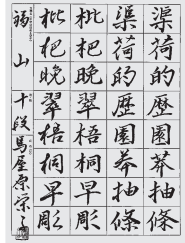 渠荷的歷園莽抽條
渠荷的歷園莽抽條
枇杷晚翠梧桐早彫
枇杷晚翠梧桐早彫
福山 十段 馬屋原